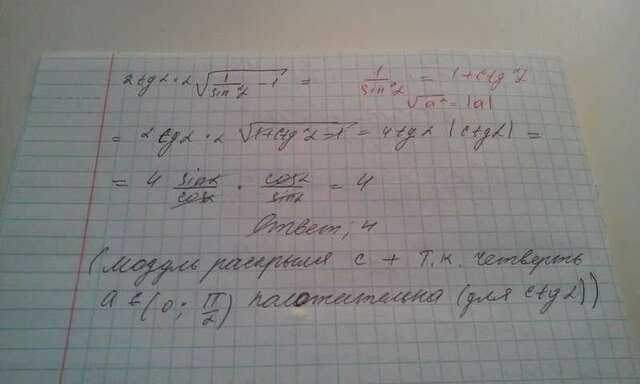 2tgα · 2 √(1/sin²α − 1) =
1/sin²α = 1 + ctg²α
√a² = |a|
= 2tgα · 2 √(1+ctg²α−1) = 4tgα |ctgα| =
= 4 sinα/cosα · cosα/sinα = 4
Ответ: 4
(модуль раскрыли с + т.к. четверть
α ∈ (0; π/2) положительна (для ctgα))